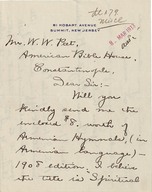 81 HOBART AVENUE
SUMMIT, NEW JERSEY
Mr. W. W. Peet,
American Bible House,
Constantinople,
Dear Sir:-
Will you
kindly send me the
enclosed $8. worth of
Armenian Hymnals (in
Armenian language) -
1908 edition. I believe
the title is Spiritual